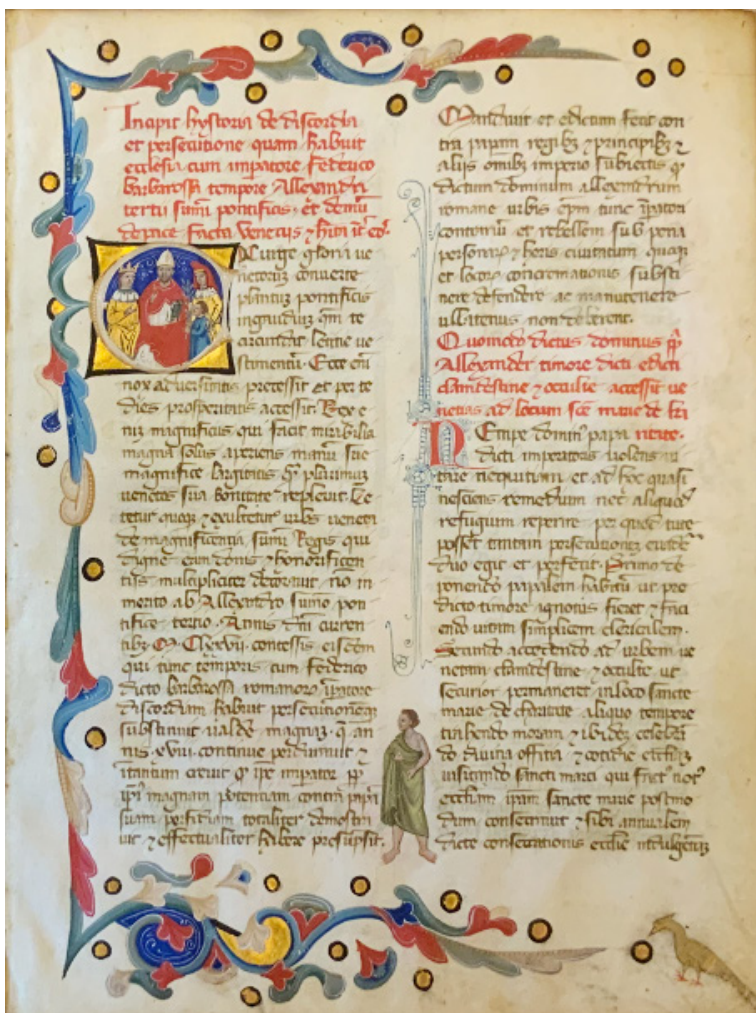 Incipit hystoria de discordia
et persecutione quam habuit
ecclesia cum impatore federico
barbarossa tempore Allexandri
tertii sumi pontificis. et demū
de pace facta Venecus
urge gloria ve
netorum converte
pontificis
te
Ecce eni
nox adversitatis precessit et per te
dies prosperitatis accessit. Rex e
nim magnificus qui facit mirabilia
magna solus aperiens manū sue
magnifice largitatis plurimum
venetos sua bonitate replevit. Le
tetur et exultetur urbs veneta
de magnificentia sumi Regis qui
digne eam donis et honorificen
tiis multipliciter decoravit, no in
merito ab Allexandro sumo pon
tifice tertio. Annis dni curren
tibz M Clxxvii
qui tunc temporis cum federico
dicto barbarossa romanorz ipatore
discordiam habuit persecutionemqz
substinuit valde magnam. q an
nis xviii. continue perdurauit et
itantum crevit ipe imperator
magnam potentiam contra
suam perfidiam totaliter demostra
vit et effectualiter habere presupsit.
Mandavit et edictum fecit con
tra papam regibz et principibz et
aliis omibz imperio subiectis
dictum dominum allexandrum
romane urbis epm tunc ipatori
contrariū et rebellem sub pena
personarz et
et locorz concremationis substi
nere defendere ac manutenere
ullatenus non deberent.
Quomodo dictus dominus
Allexander timore dicti edicti
clandestine et occulte accessit ve
netias ad locum sce marie de
Nempe domin papa
dicti imperatoris volens
tare nequitiam et ad hoc quasi
nesciens remedium nec aliquod
refugium reperire per quod tute
posset tantam persecutionem
duo egit et perfecit. Primo de
ponendo papalem habitū ut pre
dicto timore ignotus fieret et
endo vitam simplicem clericalem.
Secundo accedendo ad urbem ve
netam clandestine et occulte ut
securior permaneret in loco sancte
marie de charitate aliquo tempore
trahendo moram et ibidem celebrā
do divina offitia et cotidie
visitando sancti marci qui
ecclam ipam sancte marie postmo
dum consecravit et sibi annualem
dicte consecrationis ecclie